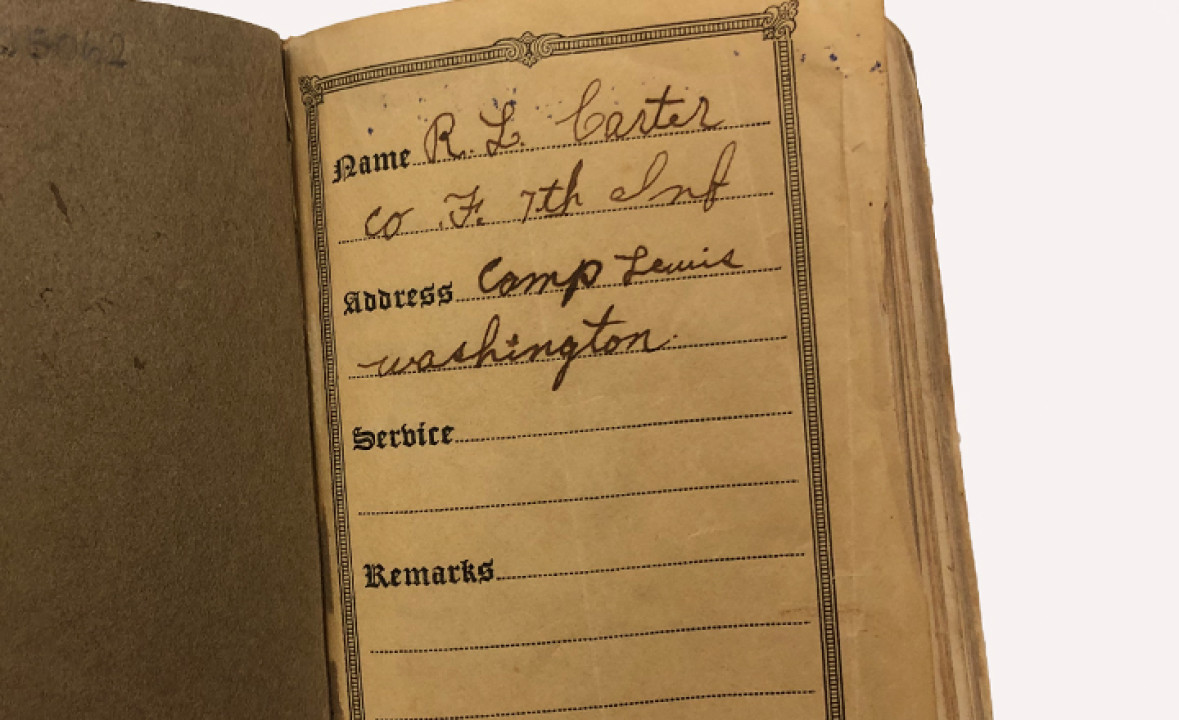 Name R. L. Carter
Co. F. 7th Inf
Address Camp Lewis
Washington.
Service
Remarks